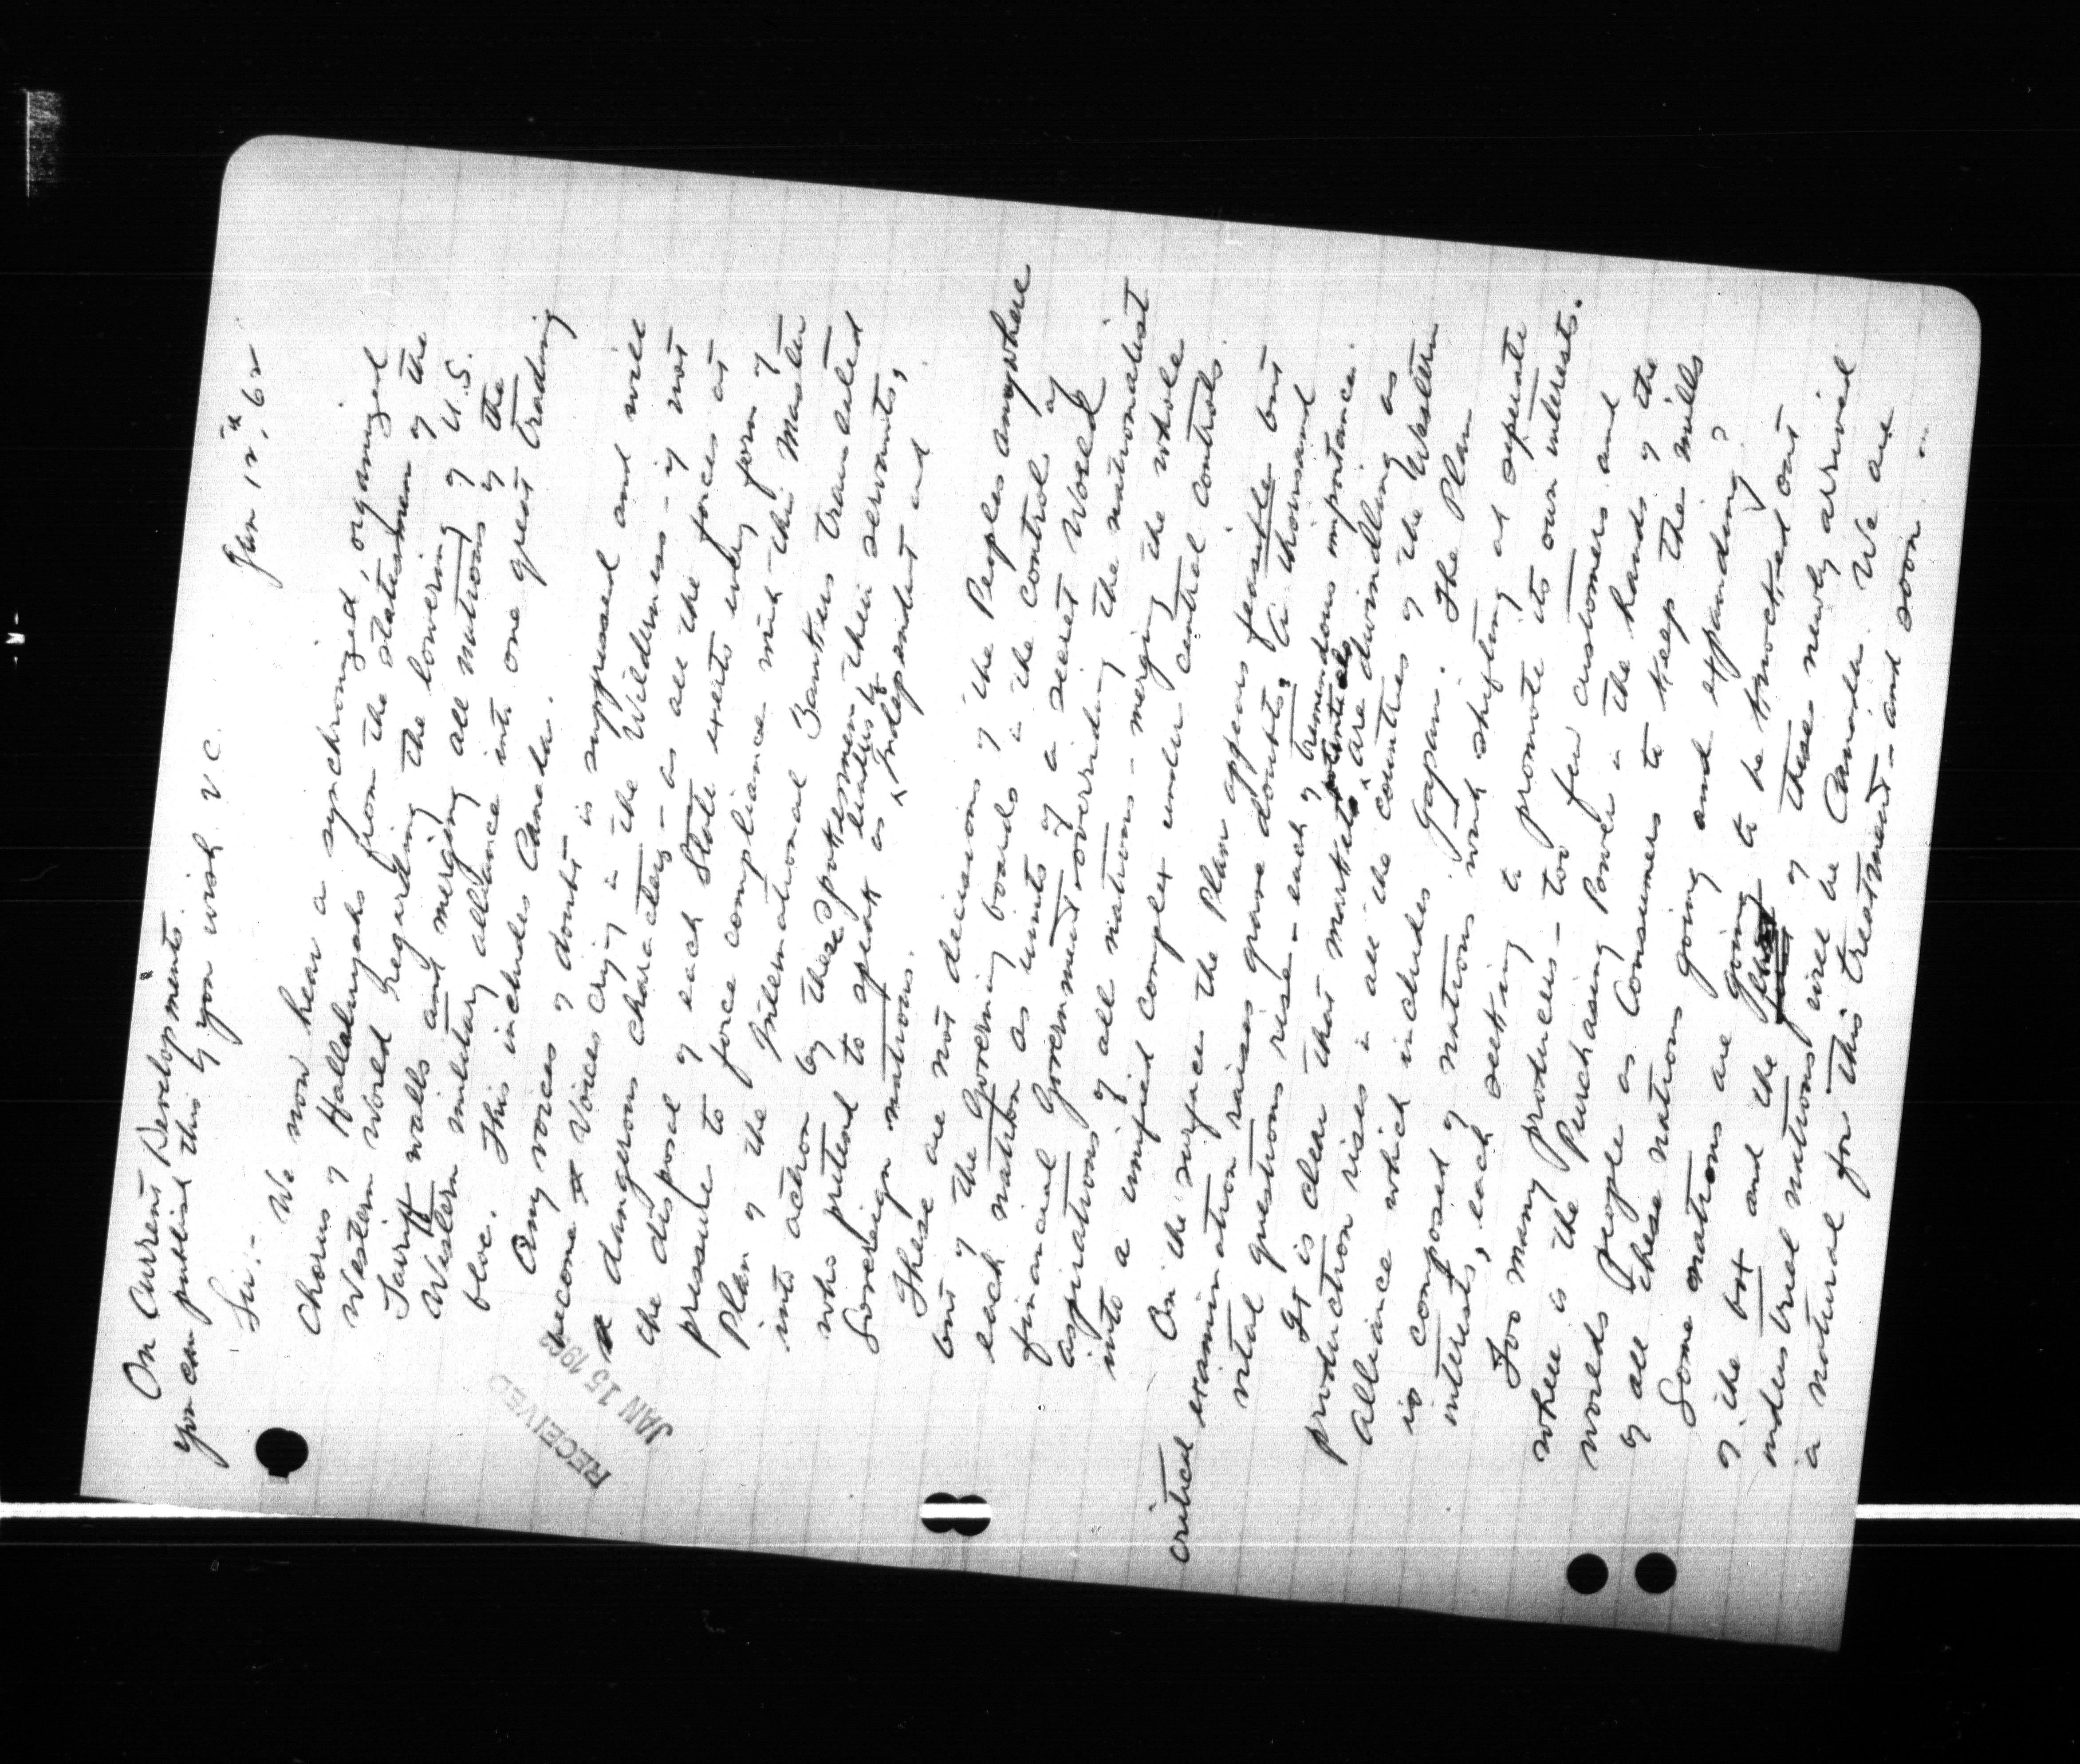 On Current Developments.
you can publish this if you wish V.C.
Jan 12th, 62
Sir:- We now hear a synchronized, organized
Chorus of Hallalujahs from the statesmen of the
Western World regarding the lowering of U.S.
Tariff walls and merging all nations of the
Western military alliance into one great trading
bloc. This includes Canada.
Any voices of doubt is suppressed and will
become Voices crying in the Wilderness - if not
dangerous characters - as all the forces at
the disposal of each State exerts every form of
pressure to force compliance with this Master
Plan of the International Bankers translated
into action by these spokesmen their servants,
who pretend to speak as leaders of Independent and
Sovereign nations.
These are not decisions of the Peoples anywhere
but of the Governing boards in the control of
each nation as units of a secret World
financial Government overriding the nationalist
aspirations of all nations - merging the whole
into a unified complex under central controls.
On the surface the Plan appears feasible but
critical examination raises grave doubts, A thousand
vital questions rise - each of tremendous importance.
It is clear that markets potentials are dwindling as
production rises in all the countries of the Western
Alliance which includes Japan. The Plan
is composed of nations with shifting and separate
interests, each seeking to promote its own interests.
Too many producers - too few customers and
where is the Purchasing Power in the hands of the
worlds People as Consumers to keep the mills
of all these nations going and expanding?
Some nations are going to be knocked out
of the box and the first of these newly arrived
industrial nations will be Canada. We are
a natural for this treatment - and soon...
RECEIVED
JAN 15 1962